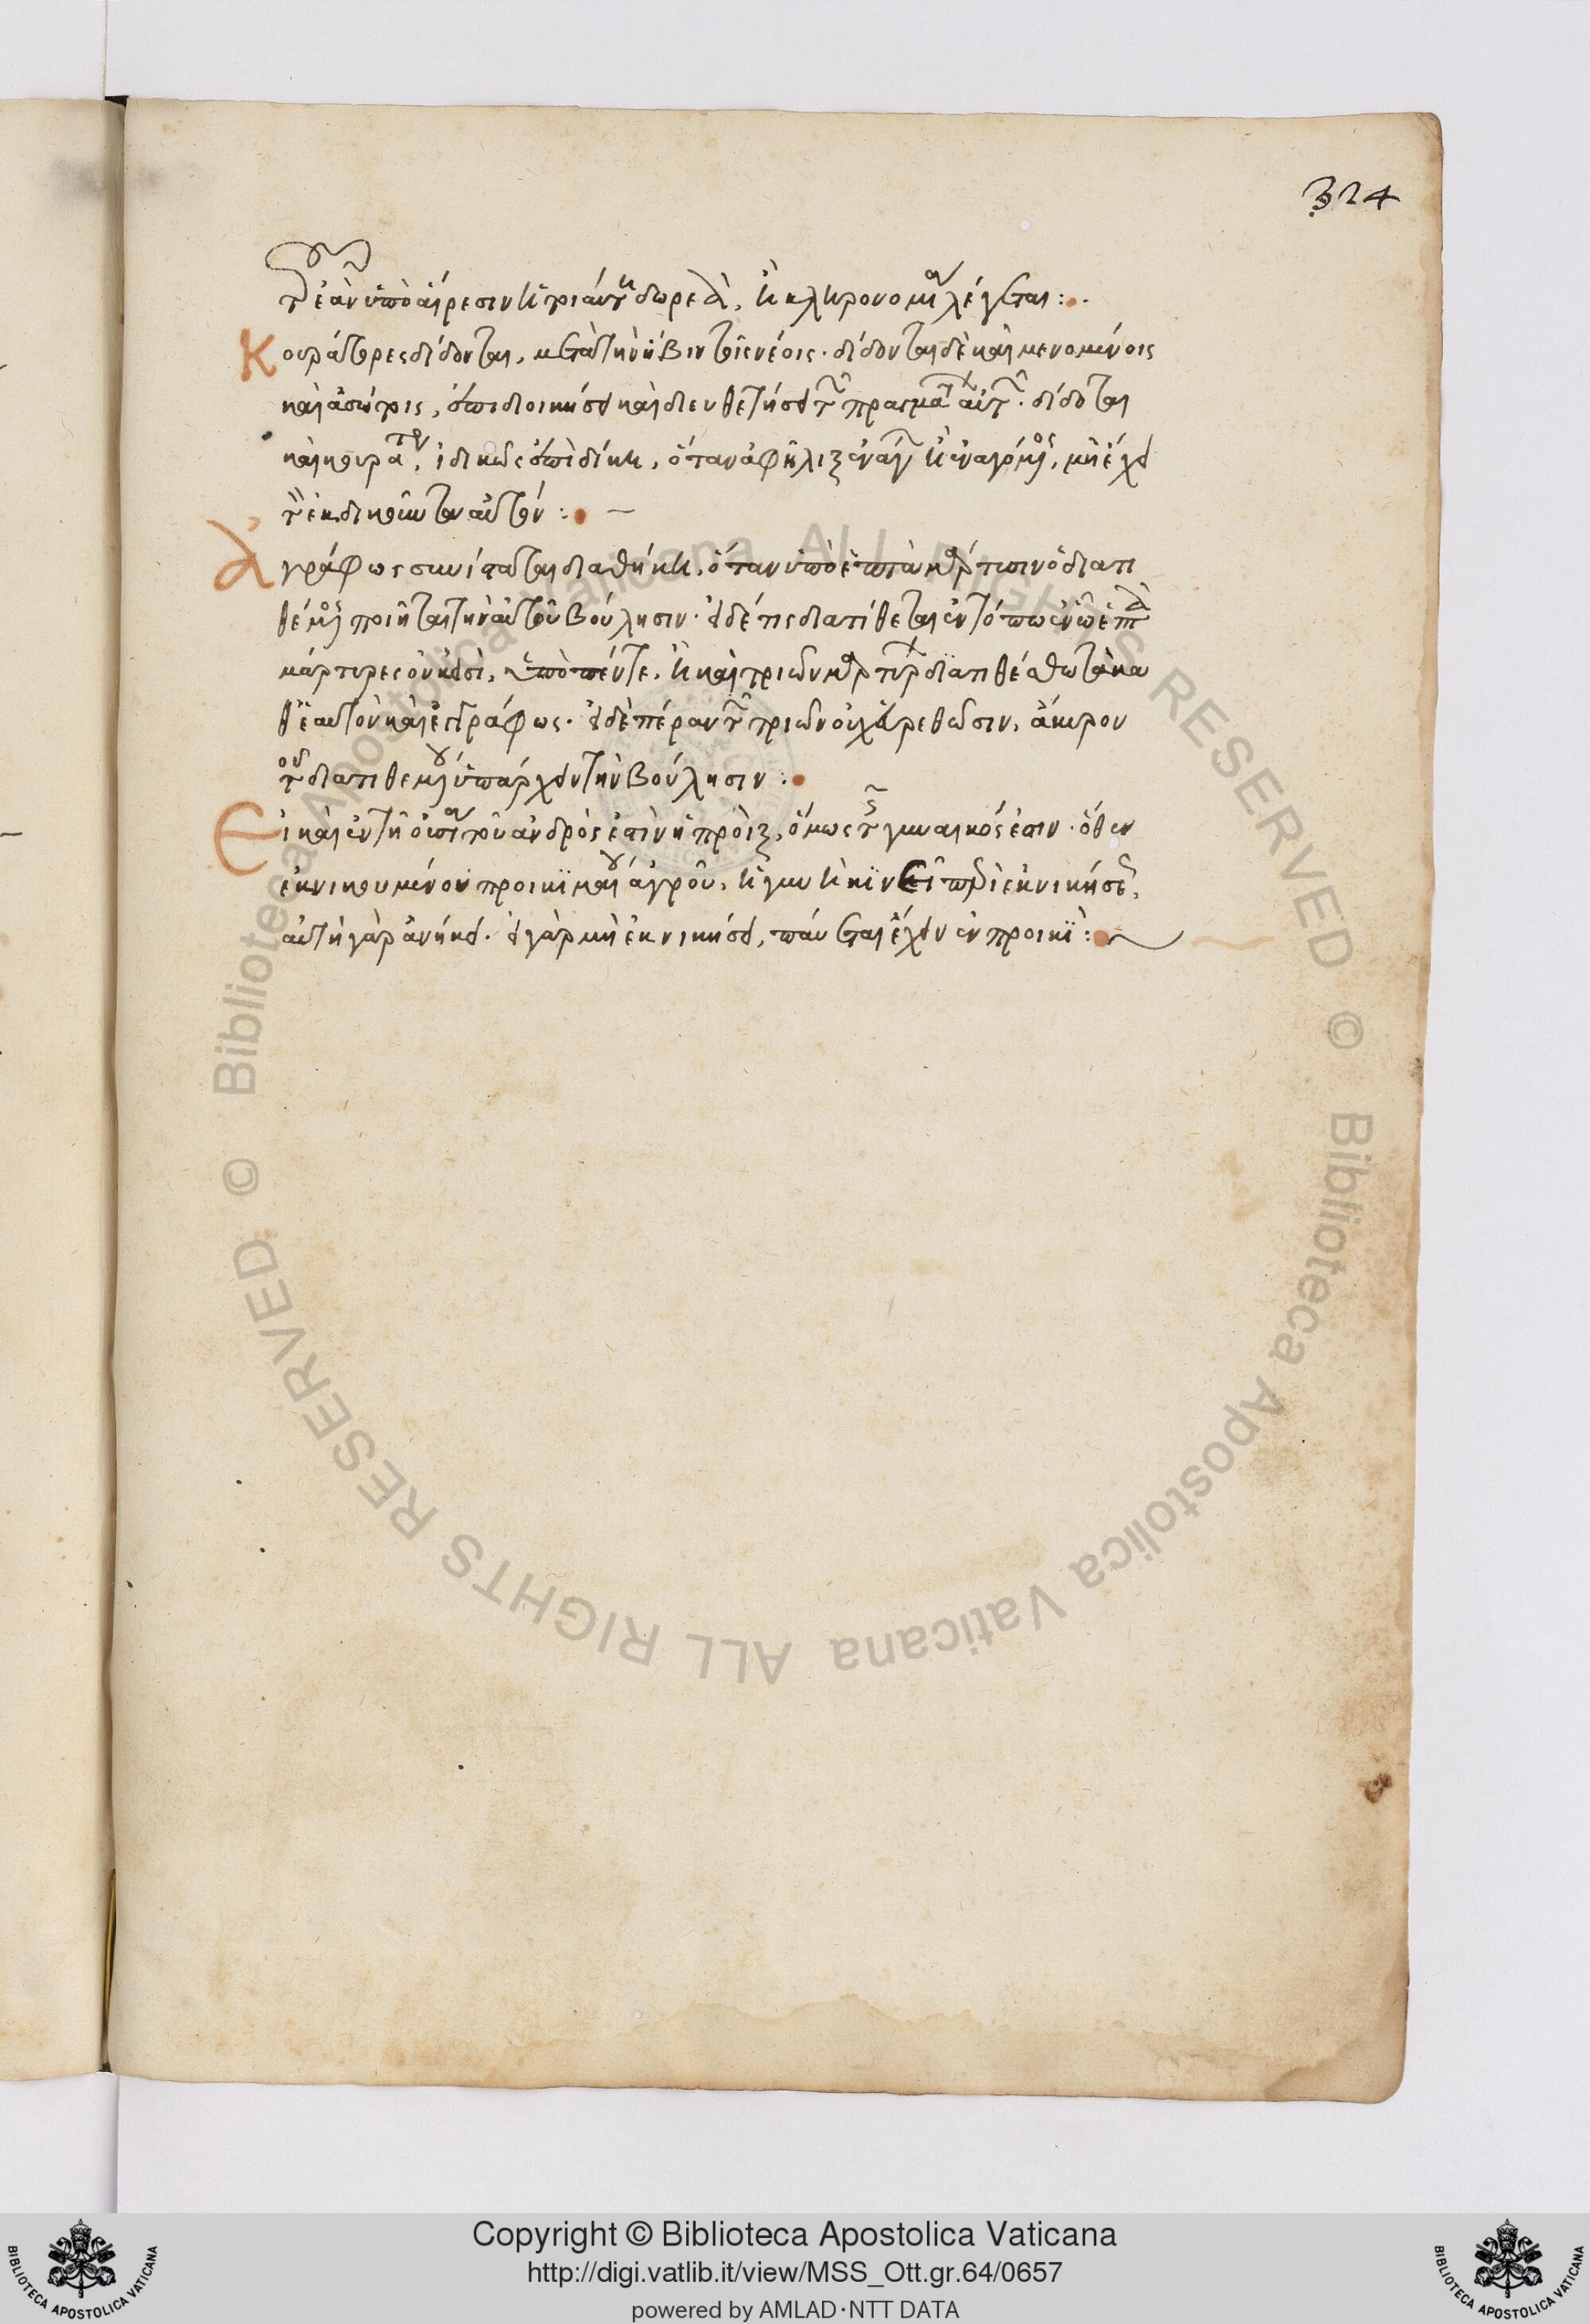 324
τῶν ἐὰν ὑπὸ αἵρεσιν ἢ τοιαύτη δωρεὰ, ἢ κληρονομία λέγεται :.
Κουράτορες δίδονται, μετὰ τὴν ἥβην τοῖς νέοις· δίδονται δὲ καὶ μαινομένοις
καὶ ἀσώτοις, ἐπὶ διοικήσει καὶ διευθετήσει τῶν πραγμάτων αὐτῶν· δίδοται
καὶ κουράτωρ, ἰδικῶς ἐπὶ δίκη, ὅταν ἀφῆλιξ ἐνάγων ἢ ἐναγόμενος, μὴ ἔχει
τὸν ἐκδικοῦντα αὐτόν :. –
Ἀγράφως συνίσταται διαθήκη, ὅταν ὑπὸ ἑπτὰ μάρτυσιν ὁ διατι
θέμενος ποιῆται τὴν αὐτοῦ βούλησιν· εἰ δέ τις διατίθεται ἐν τόπω ἐν ὧ ἑπτὰ
μάρτυρες οὐκ εἰσὶ, ὑπὸ πέντε, ἢ καὶ τριῶν μαρτύρων διατιθέσθω τὰ κα
θ' ἑαυτὸν καὶ ἐγγράφως· εἰ δὲ πέραν τῶν τριῶν οὐχ εὑρεθῶσιν, ἄκυρον
τοῦ διατιθεμένου ὑπάρχειν τὴν βούλησιν :.
Εἰ καὶ ἐν τῆ οὐσία τοῦ ἀνδρὸς ἐστὶν ἡ προὶξ, ὅμως τῆς γυναικός ἐστιν· ὅθεν
ἐκνικουμένου προικιμαίου ἀγροῦ, ἡ γυνὴ κινεῖ περὶ ἐκνικήσεως,
αὐτῆ γὰρ ἀνήκει· εἰ γὰρ μὴ ἐκνικήσει, παύεται ἔχειν ἐν προικὶ :.
Copyright © Biblioteca Apostolica Vaticana
http://digi.vatlib.it/view/MSS_Ott.gr.64/0657
powered by AMLAD·NTT DATA
BIBLIOTECA APOSTOLICA VATICANA
BIBLIOTECA APOSTOLICA VATICANA
© Biblioteca Apostolica Vaticana ALL RIGHTS RESERVED
© Biblioteca Apostolica Vaticana ALL RIGHTS RESERVED